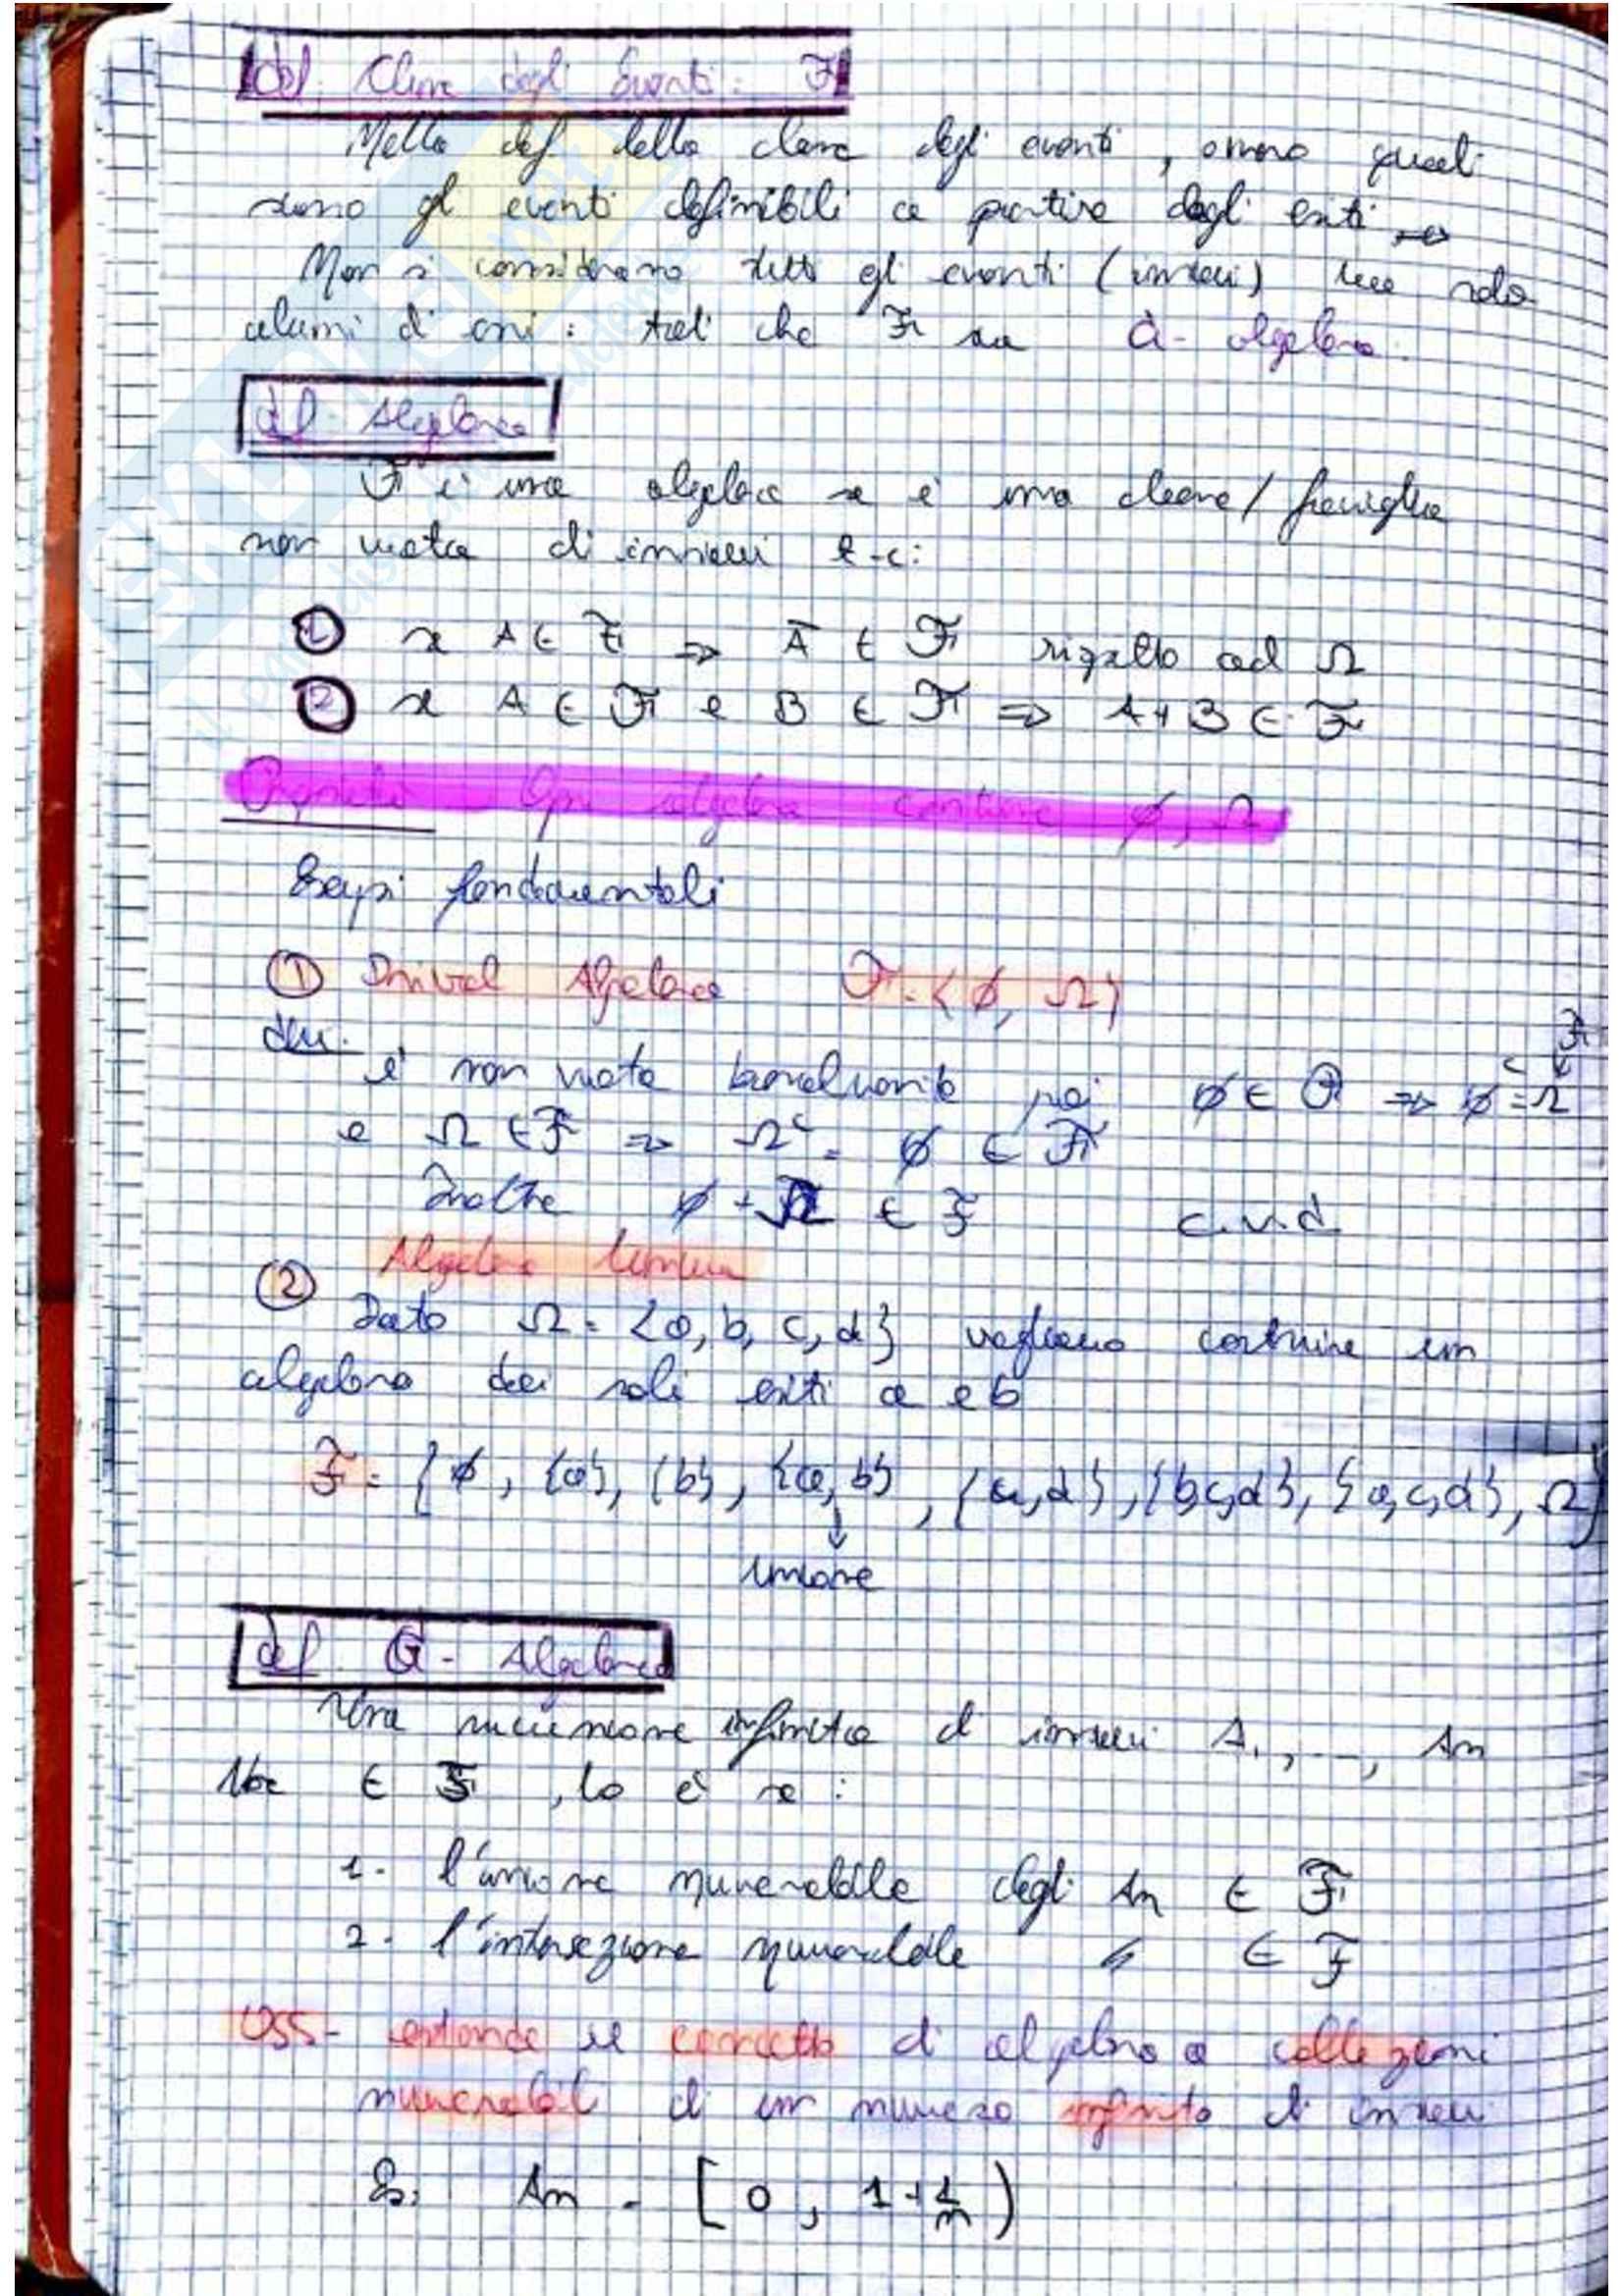 def Classe degli Eventi: F
Nella def della classe degli eventi, ovvero quali
sono gl eventi definibili a partire dagli esiti →
Non si considerano tutti gli eventi (insiemi) ma solo
alcuni di essi: tali che F sia σ- algebra.
def Algebra
F è una algebra se è una classe/famiglia
non vuota di insiemi t.c:
① se A ∈ F ⇒ Ā ∈ F rispetto ad Ω
② se A ∈ F e B ∈ F ⇒ A+B ∈ F
Proprietà Ogni algebra contiene ∅, Ω
Esempi fondamentali
① Trivial Algebra F = {∅, Ω}
dim.
è non vuota banalmente poi ∅ ∈ F ⇒ ∅ᶜ = Ω ∈ F
e Ω ∈ F ⇒ Ωᶜ = ∅ ∈ F
Inoltre ∅ + Ω ∈ F c.v.d
Algebra
② Dato Ω = {a, b, c, d} vogliamo costruire un
algebra dai soli esiti a e b
F = {∅, {a}, {b}, {a, b}, {c,d}, {b,c,d}, {a,c,d}, Ω}
↓
unione
def σ- Algebra
Una successione infinita di insiemi A₁, ..., An
∈ F, lo è se:
1- l'unione numerabile degli An ∈ F
2- l'intersezione numerabile " ∈ F
OSS- estende il concetto di algebra a collezioni
numerabili di un numero infinito di insiemi
Es. An = [0, 1+1/n)